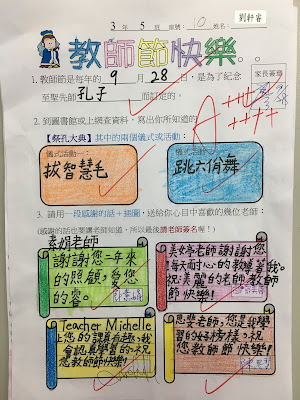 3 年 5 班 座號：10 姓名：劉軒睿
教師節快樂。。
家長簽章
1. 教師節是每年的 9 月 28 日，是為了紀念
至聖先師 孔子 而訂定的。
2. 到圖書館或上網查資料，寫出你所知道的
A+++
++++
【祭孔大典】其中的兩個儀式或活動：
儀式活動一：
拔智慧毛
儀式活動二：
跳六佾舞
3. 請用一段感謝的話＋插圖，送給你心目中喜歡的幾位老師：
(感謝的話也要讓老師知道，所以最後請老師簽名喔！)
素娟老師
謝謝您二年來
的照顧，愛您
的容。
美婷老師謝謝您
每天耐心的教導著我。
祝美麗的老師教師
節快樂！
Teacher Michelle
上您的課真有趣，我
會認真學習的，祝
您教師節快樂！
老師，您是我學
習的好榜樣，祝
您教師節快樂！